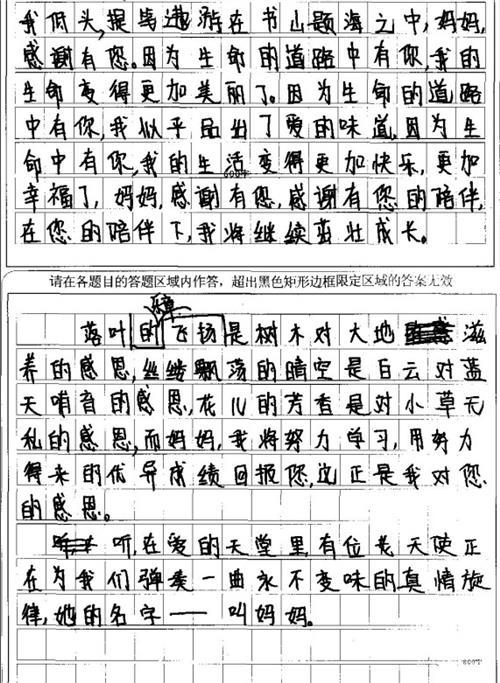 我低头,提笔遨游在书山题海之中,妈妈,
感谢有您。因为生命的道路中有你,我的
生命变得更加美丽了。因为生命的道路
中有你,我似乎品出了爱的味道。因为生
命中有你,我的生活变得更加快乐,更加
600字
幸福了,妈妈,感谢有您,感谢有您的陪伴,
在您的陪伴下,我将继续茁壮成长。
请在各题目的答题区域内作答,超出黑色矩形边框限定区域的答案无效
落叶的飞扬是树木对大地滋
养的感恩,丝缕飘荡的晴空是白云对蓝
天哨音的感恩,花儿的芳香是对小草无
私的感恩,而妈妈,我将努力学习,用努力
得来的优异成绩回报您,这正是我对您
的感恩。
听,在爱的天堂里,有位老天使正
在为我们弹奏一曲永不变味的真情旋
律,她的名字——叫妈妈。
800字